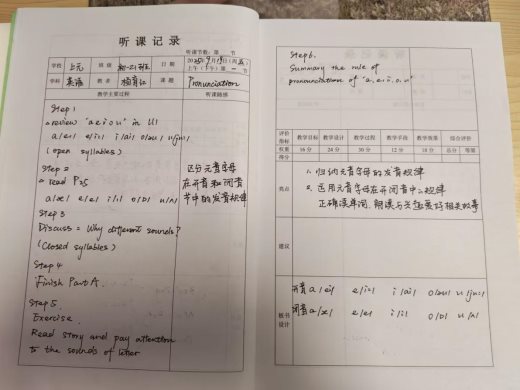 听课记录
听课节数：第 节
学校 上元 班级 初一21班 日期 2025年9月19日(周五)
上午（下午）第 一 节
学科 英语 教者 课题 Pronunciation
教学主要过程 听课随感
Step 1
review 'a e i o u' in U1
a/ei/ e/i:/ i/ai/ o/əu/ u/ju:/
(open syllables)
Step 2
Read P25
a/æ/ e/e/ i/i/ o/ɒ/ u/ʌ/
区分元音字母
在开音和闭音
节中的发音规律
Step 3
Discuss: Why different sounds?
(closed syllables)
Step 4
Finish Part A.
Step 5.
Exercise
Read story and pay attention
to the sounds of letter
Step 6.
Summary the rule of
pronunciation of 'a.e.i.o.u'
评价指标 教学目标 教学设计 教学过程 教学手段 教学效果 综合评价
权重 16分 24分 30分 12分 18分 总分 等第
得分
亮点
1. 归纳元音字母的发音规律
2. 运用元音字母在开闭音中的规律
正确读单词，朗读与
相关故事
建议
板书设计
开音 a/ei/ e/i:/ i/ai/ o/əu/ u/ju:/
闭音 a/æ/ e/e/ i/i/ o/ɒ/ u/ʌ/